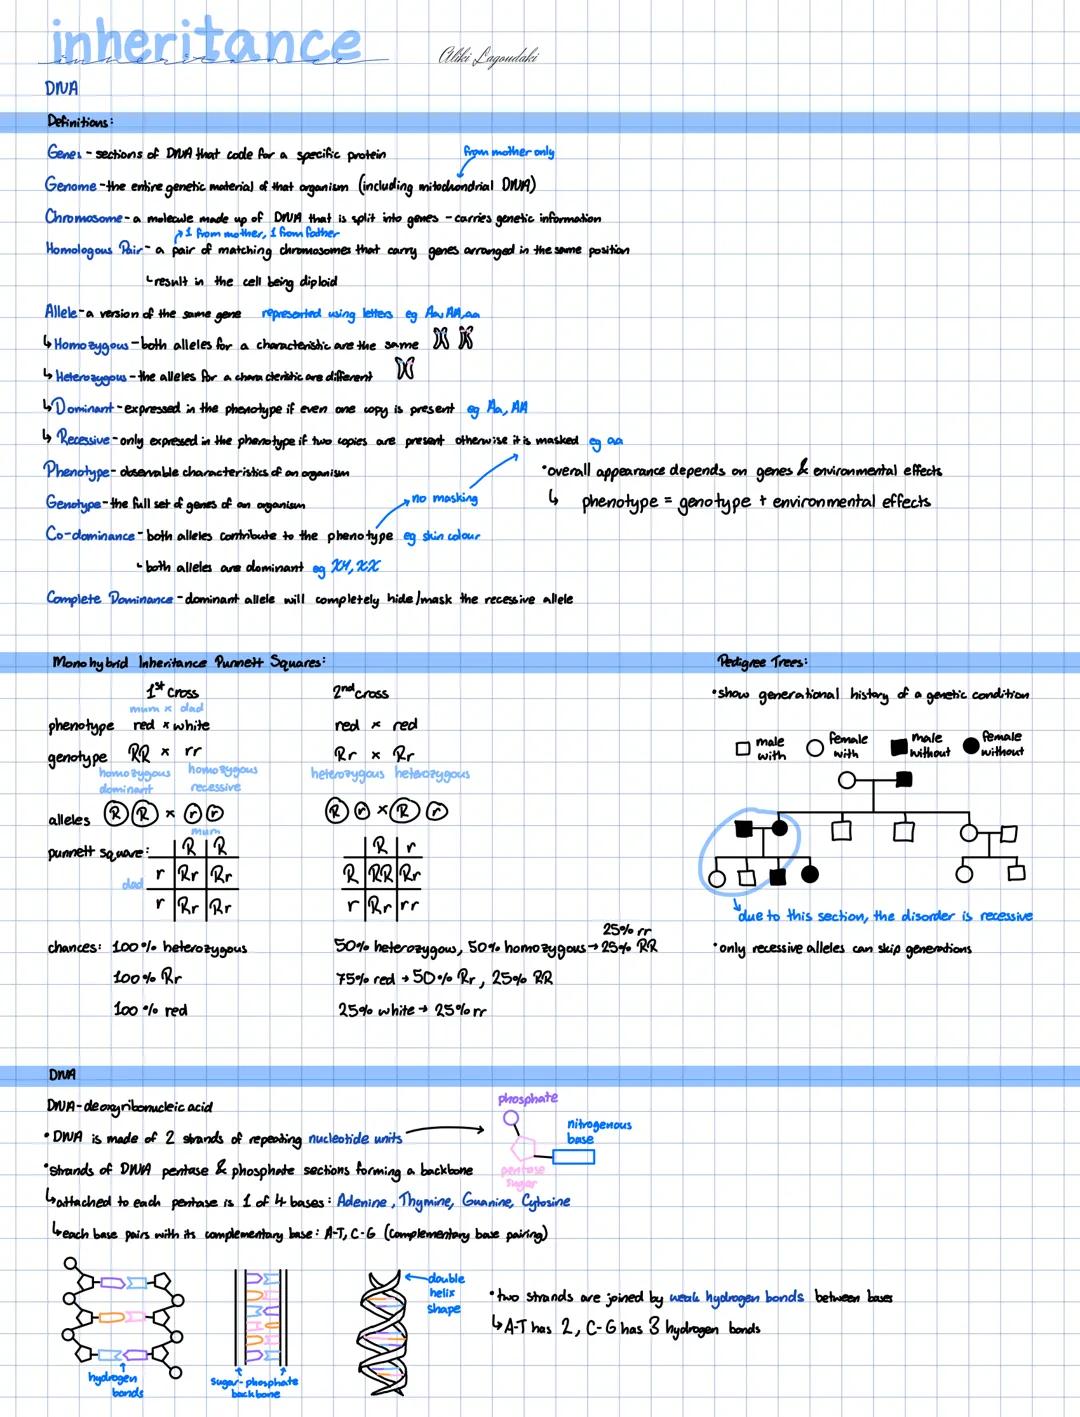 inheritance
inheritance
Aliki Lagoudaki
DNA
Definitions:
Genes - sections of DNA that code for a specific protein
from mother only
Genome - the entire genetic material of that organism (including mitochondrial DNA)
Chromosome - a molecule made up of DNA that is split into genes - carries genetic information
1 from mother, 1 from father
Homologous Pair - a pair of matching chromosomes that carry genes arranged in the same position
↳ result in the cell being diploid
Allele - a version of the same gene represented using letters eg Aa, AA, aa
↳ Homozygous - both alleles for a characteristic are the same
↳ Heterozygous - the alleles for a characteristic are different
↳ Dominant - expressed in the phenotype if even one copy is present eg Aa, AA
↳ Recessive - only expressed in the phenotype if two copies are present otherwise it is masked eg aa
Phenotype - observable characteristics of an organism
•overall appearance depends on genes & environmental effects
Genotype - the full set of genes of an organism
no masking
↳ phenotype = genotype + environmental effects
Co-dominance - both alleles contribute to the phenotype eg skin colour
↳ both alleles are dominant eg XY, XX
Complete Dominance - dominant allele will completely hide/mask the recessive allele
Monohybrid Inheritance Punnett Squares:
1st cross
2nd cross
mum x dad
phenotype red x white
red x red
genotype RR x rr
Rr x Rr
homozygous dominant
homozygous recessive
heterozygous heterozygous
alleles R R x r r
R r x R r
mum
punnett square: R R
dad
r Rr Rr
r Rr Rr
R r
R RR Rr
r Rr rr
chances: 100% heterozygous
100% Rr
100% red
25% rr
50% heterozygous, 50% homozygous → 25% RR
75% red → 50% Rr, 25% RR
25% white → 25% rr
Pedigree Trees:
•show generational history of a genetic condition
male with
female with
male without
female without
due to this section, the disorder is recessive
•only recessive alleles can skip generations
DNA
DNA - deoxyribonucleic acid
•DNA is made of 2 strands of repeating nucleotide units
phosphate
nitrogenous base
pentase sugar
•strands of DNA pentase & phosphate sections forming a backbone
↳ attached to each pentase is 1 of 4 bases: Adenine, Thymine, Guanine, Cytosine
↳ each base pairs with its complementary base: A-T, C-G (complementary base pairing)
hydrogen bonds
sugar-phosphate backbone
double helix shape
•two strands are joined by weak hydrogen bonds between bases
↳ A-T has 2, C-G has 3 hydrogen bonds